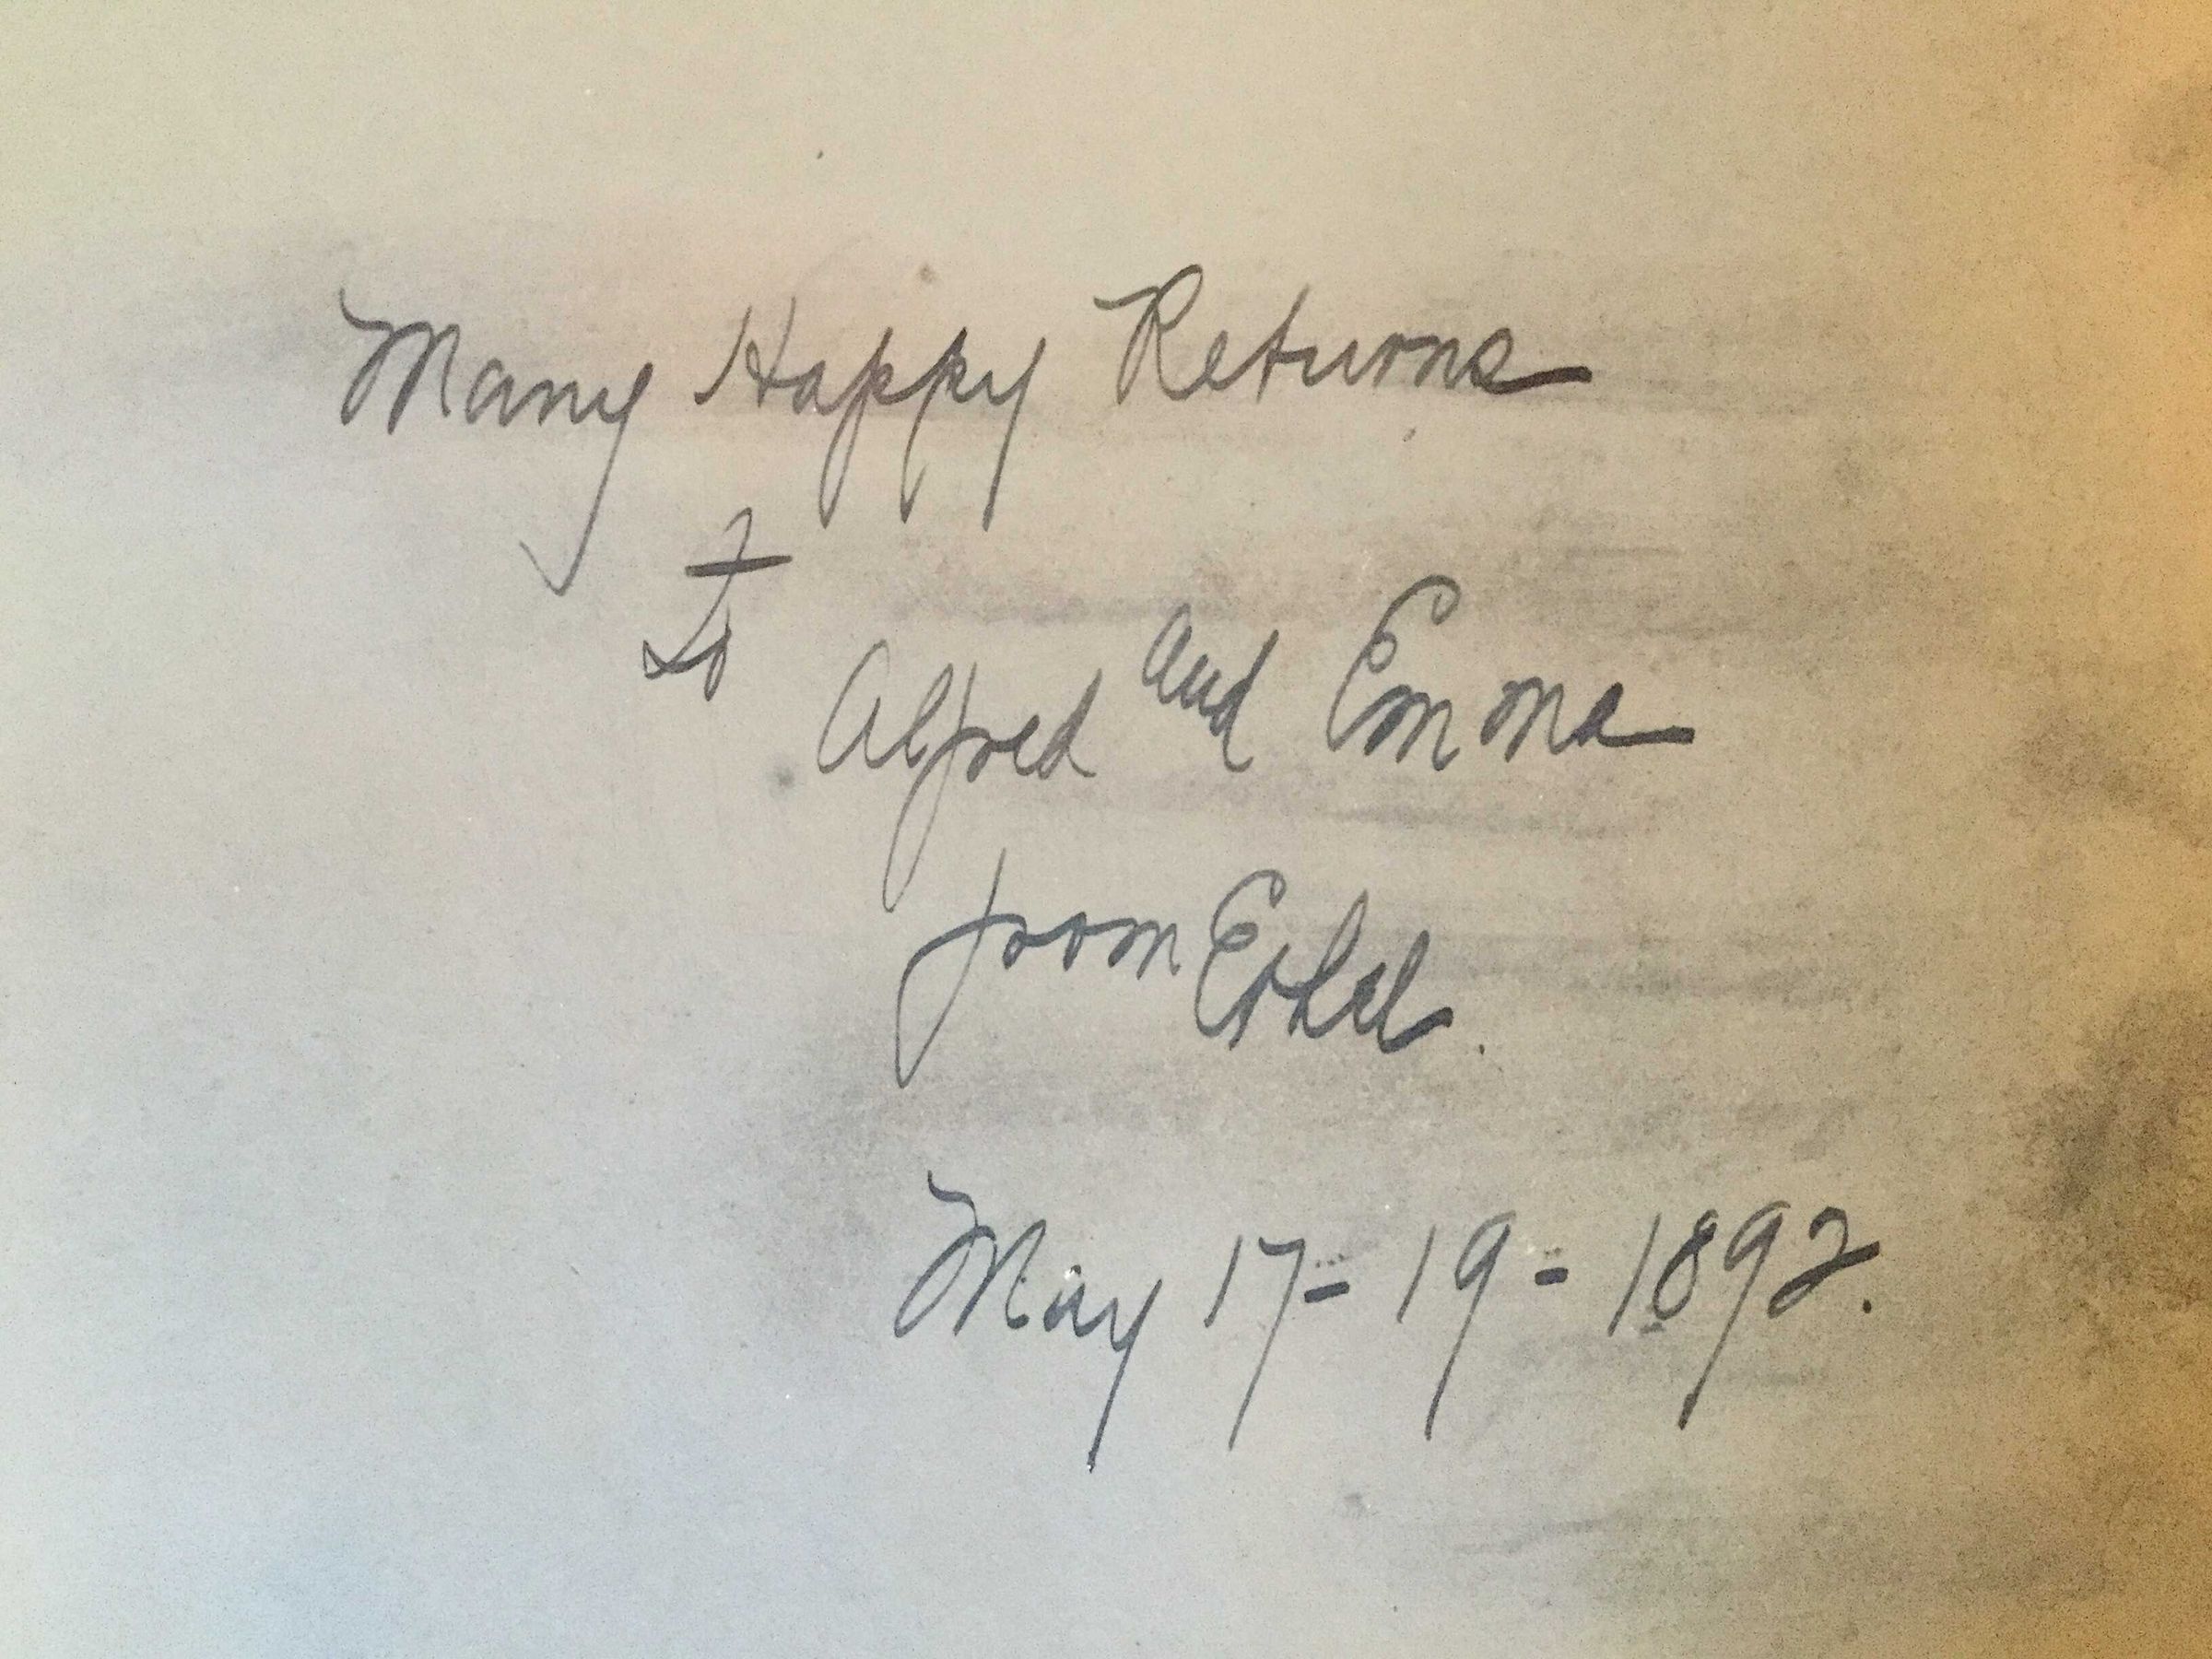 Many Happy Returns
To
Alfred and Emma
from Ethel.
May 17 - 19 - 1892.